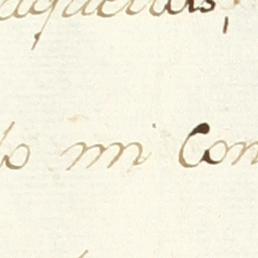 aquellas,
do mi Con